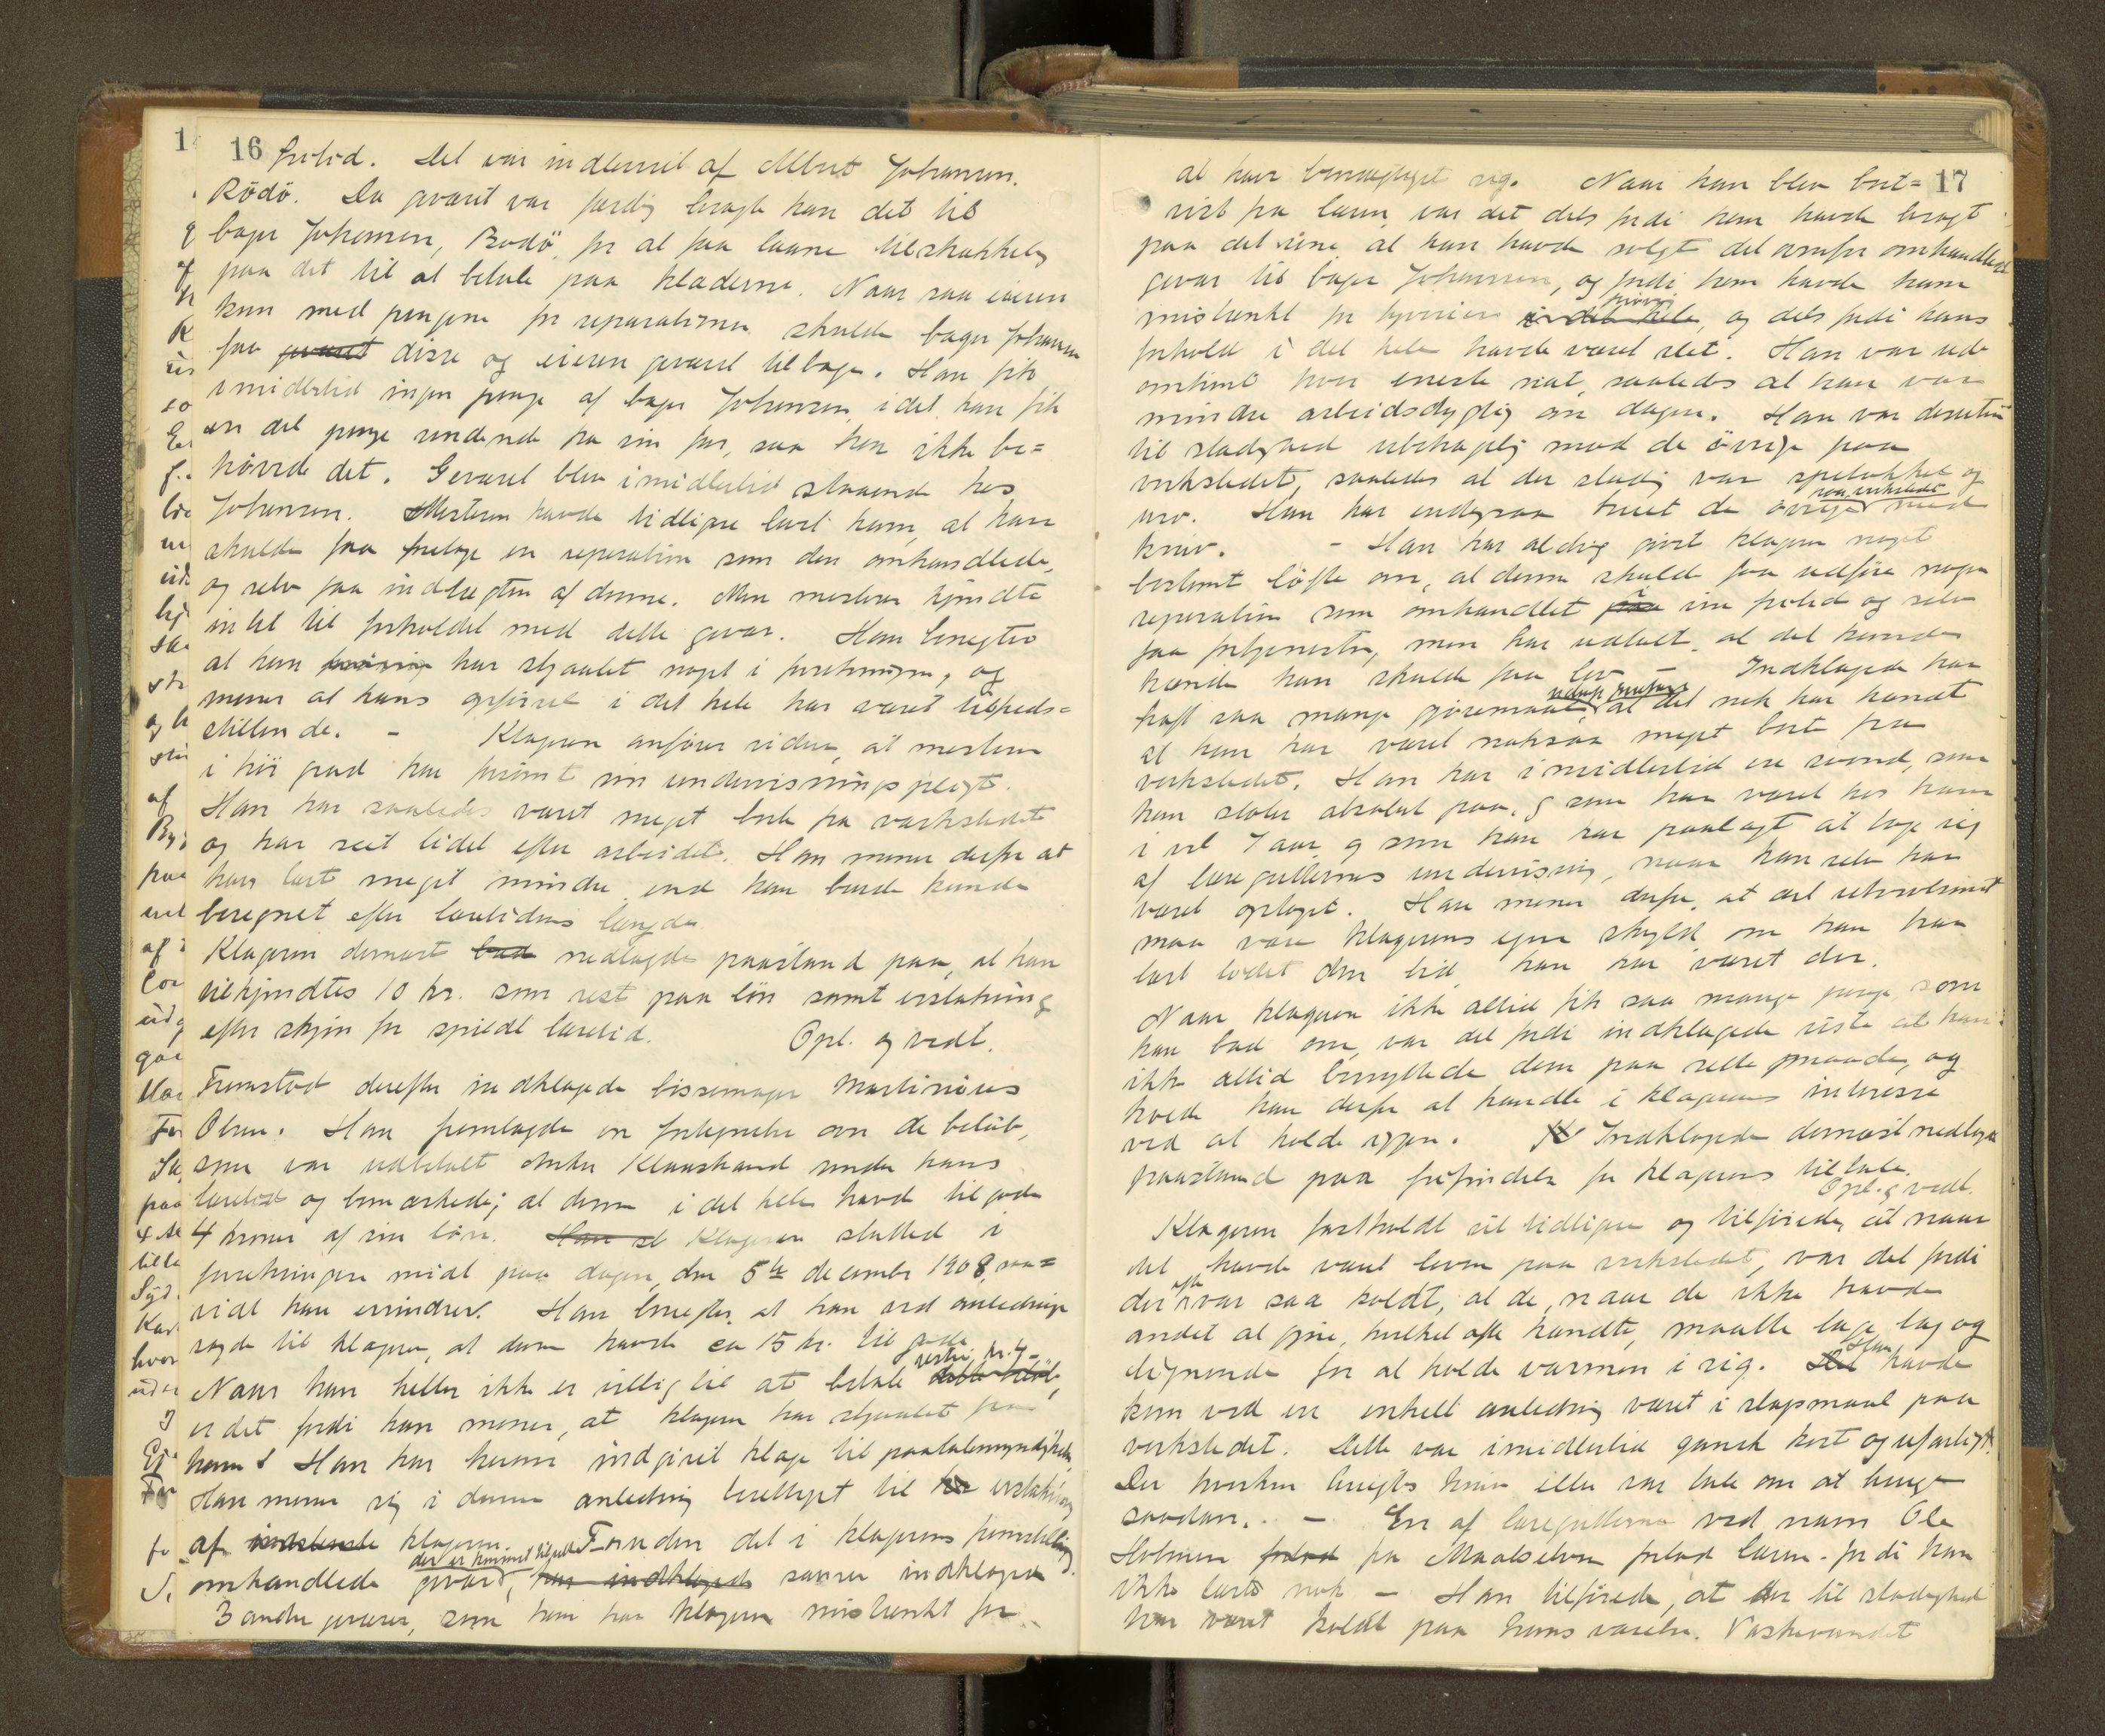 16
fritid. Det var indleveret af Albert Johansen,
Rödö. Da geværet var færdig bragte han det til
bager Johansen, Bodö, for at faa laane tilstrækkelig
paa det til at betale paa klæderne. Naar saa eieren
kom med pengene for reparationen skulde bager Johansen
faa geværet disse og eieren geværet tilbage. Han fik
imidlertid ingen penge af bager Johansen, idet han fik
en del penge sendende fra sin far, saa han ikke be=
hövede det. Geværet blev imidlertid staaende hos
Johansen. Mesteren havde tidligere lovt ham, at han
skulde faa foretage en reparation som den omhandlede,
og selv faa indtægten af denne. Men mesteren kjendte
intet til forholdet med dette gevær. Han benegter
at han har stjaalet noget i forretningen, og
mener at hans opförsel i det hele har været tilfreds=
stillende. - Klageren anförer videre, at mesteren
i höi grad har försömt sin undervisningspligt.
Han har saaledes været meget borte fra værkstedet
og har seet lidet efter arbeidet. Han mener derfor at
have lært meget mindre end han burde kunde
beregnet efter læretidens længde.
Klageren dernæst bad nedlagde paastand paa, at han
tilkjendtes 10 kr. som rest paa lön samt erstatning
efter skjön for spildt læretid. Opl. og vedt.
Fremstod derefter indklagede bössemager Martinius
Olsen. Han fremlagde en fortegnelse over de belöb,
som var udbetalt Anker Klausstrand under hans
læretid og bemærkede, at denne i det hele havde tilgode
4 kroner af sin lön. Han sl Klageren sluttet i
forretningen midt paa dagen, den 5te december 1908, saa=
vidt han erindrer. Han benegter, at han ved anledning
sagde til klageren, at denne havde ca 15 kr. til gode.
Naar han heller ikke er villig til at betale dette belöb, restr. kr. 4-
er det fordi han mener, at klageren har stjaalet fra
ham. Han har herom indgivet klage til paatalemyndigheden.
Han mener sig i denne anledning berettiget til erstatning
af indklagede klageren. Foruden det i klagerens fremstilling
omhandlede gevær, der er kommet tilrette har indklagede savner indklagede
3 andre geværer, som han har klageren mistænkt for
17
at have bemægtiget sig. Naar han blev bort=
vist fra læren var det dels fordi han havde bragt
paa det rene at han havde solgt det ovenfor omhandlede
gevær til bager Johansen, og fordi han havde ham
mistænkt for tyverier forövrig i det hele, og dels fordi hans
forhold i det hele havde været slet. Han var ude
omtrent hver eneste nat, saaledes at han var
mindre arbeidsdygtig om dagen. Han var desuten
til stadighed ubehagelig mod de övrige paa
verkstedet, saaledes at der stadig var spetakkel og
uro. Han har endogsaa truet de övrige paa verkstedet med
kniv. - Han har aldrig givet klageren noget
bestemt löfte om, at denne skulde faa udföre nogen
reparation som omhandlet i sin fritid og selv
faa fortjenesten, men har udtalt at det kunde
hænde han skulde faa lov. - Indklagede har
havt saa mange gjöremaal at det nok har hændt
at han har været noksaa meget borte fra
verkstedet. Han har imidlertid en svend, som
han stoler absolut paa, og som har været hos ham
i vel 7 aar og som han har paalagt at tage sig
af læreguttenes undervisning, naar han selv har
været optaget. Han mener derfor, at det utvivlsomt
maa være klagerens egen skyld, om han har
lært lidet den tid han har været der.
Naar klageren ikke altid fik saa mange penge, som
han bad om, var det fordi indklagede viste at han
ikke altid benyttede dem paa rette maade, og
troede han derfor at handle i klagerens interesse
ved at holde igjen. Indklagede dernæst nedlagde
paastand paa frifindelse for klagerens tiltale.
Opl. og vedt.
Klageren fastholdt sit tidligere og tilföiede, at naar
det havde været leven paa verkstedet, var det fordi
der ofte var saa koldt, at de, naar de ikke havde
andet at gjöre, hvilket ofte hændte, maatte tage tag og
lignende for at holde varmen i sig. Han havde
kun ved en enkelt anledning været i slagsmaal paa
verkstedet. Dette var imidlertid ganske kort og ufarligt.
Der hverken brugtes kniv eller var tale om at bruge
saadan. - En af læreguttene ved navn Ole
Holmen fra Maalselven forlod læren fordi han
ikke lærte nok - Han tilföiede, at der til stadighed
har været koldt paa hans værelse. Vaskevandet